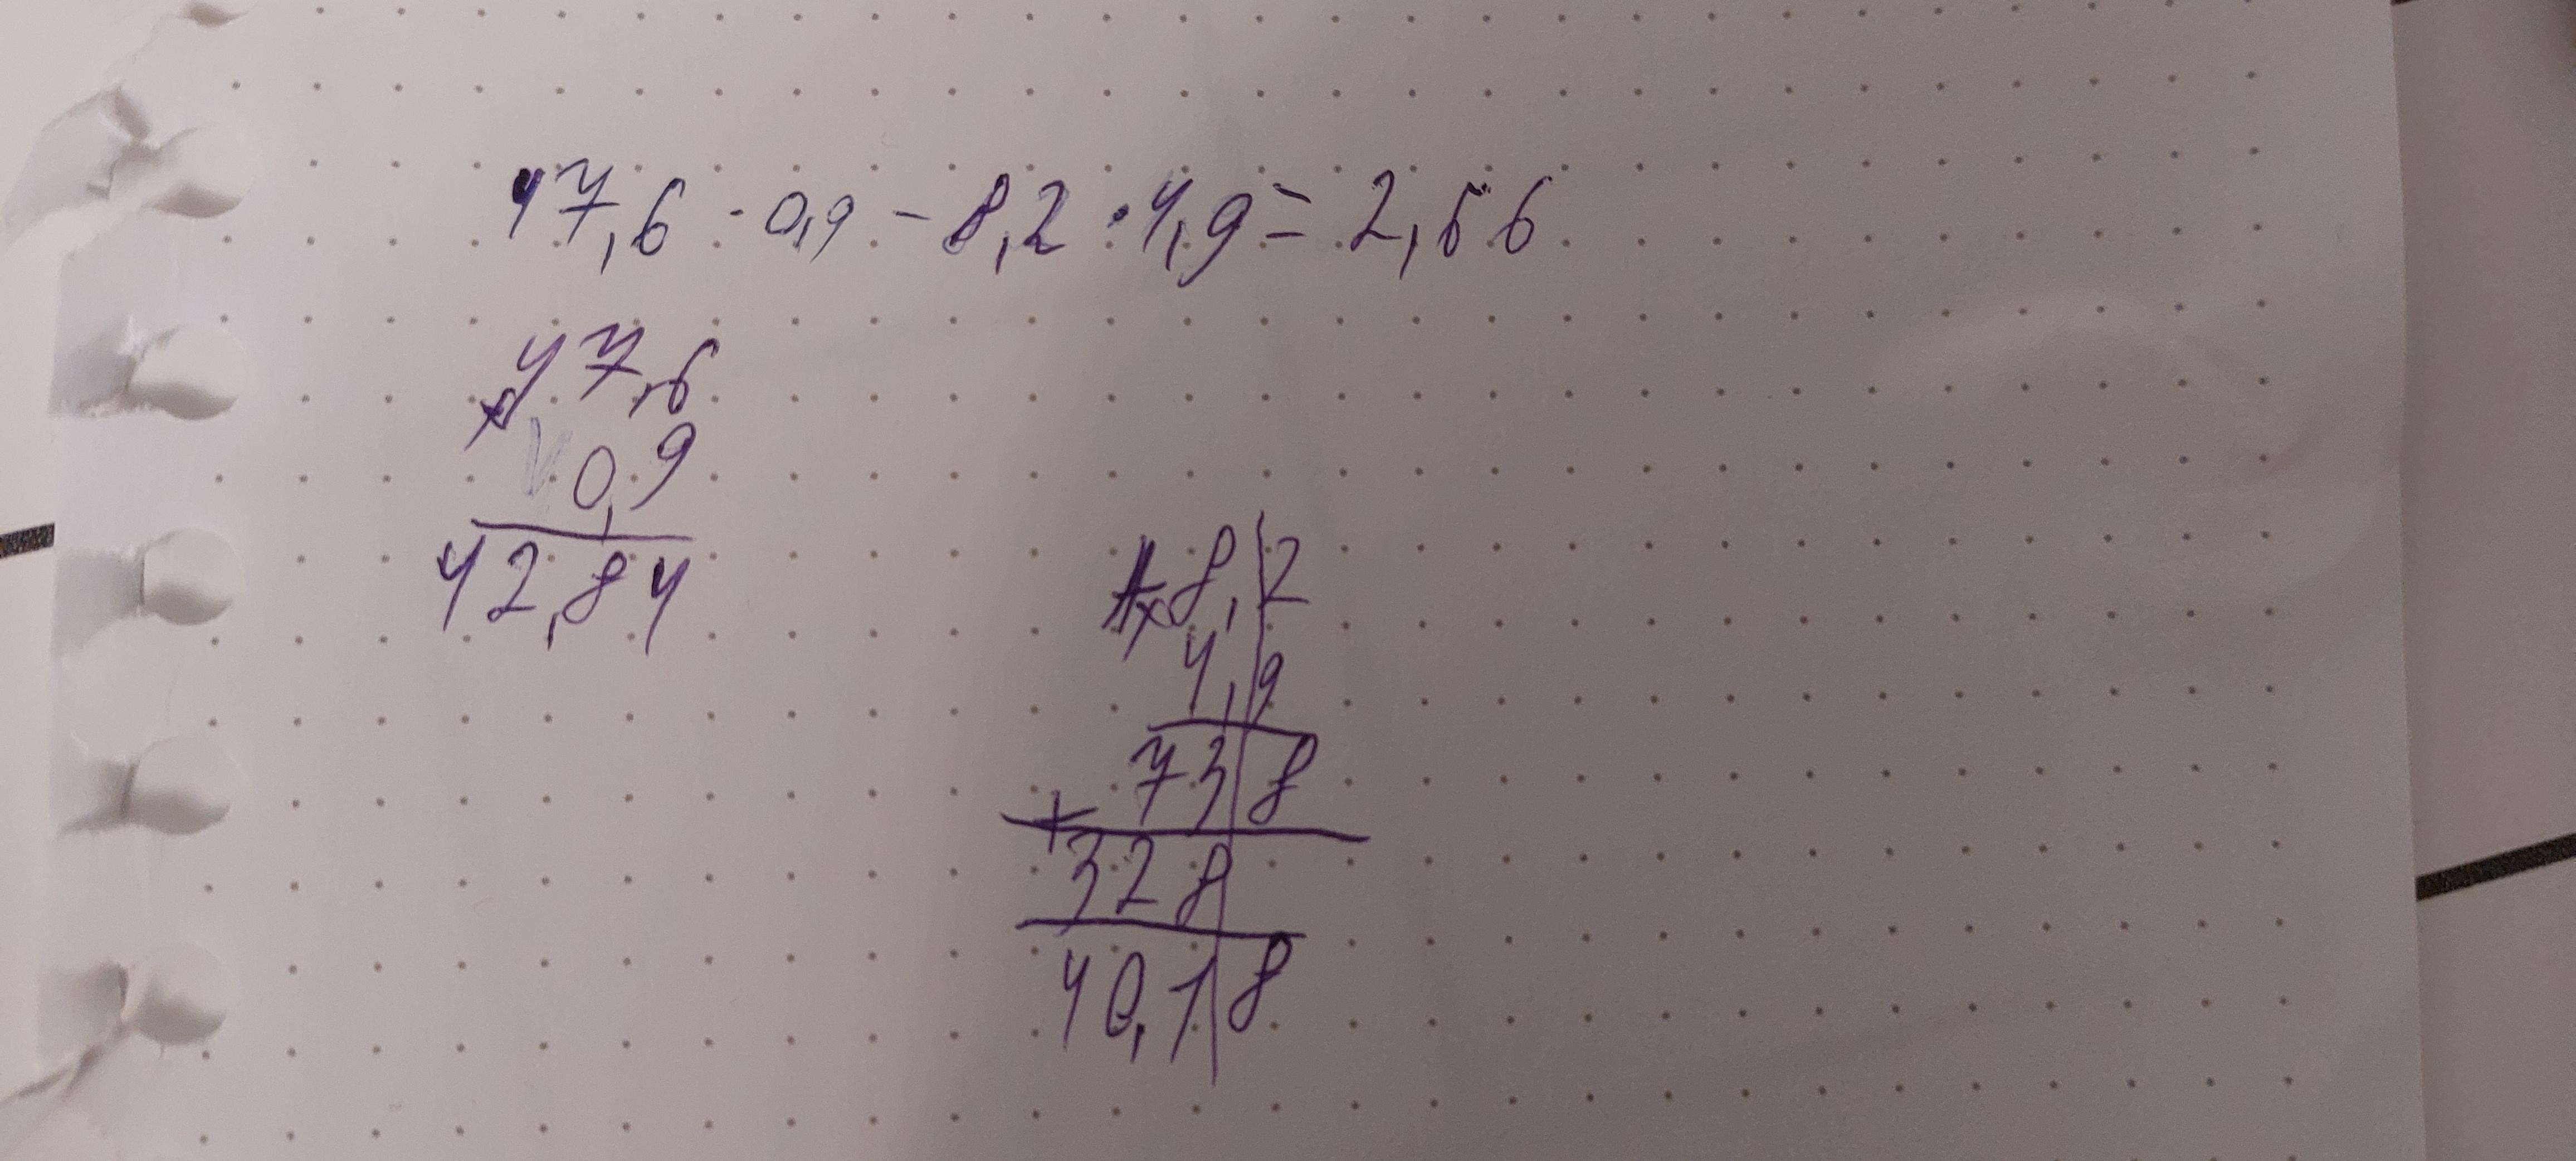 47,6 · 0,9 - 8,2 · 4,9 = 2,66
× 47,6
0,9
42,84
× 8,2
4,9
738
+
328
40,18